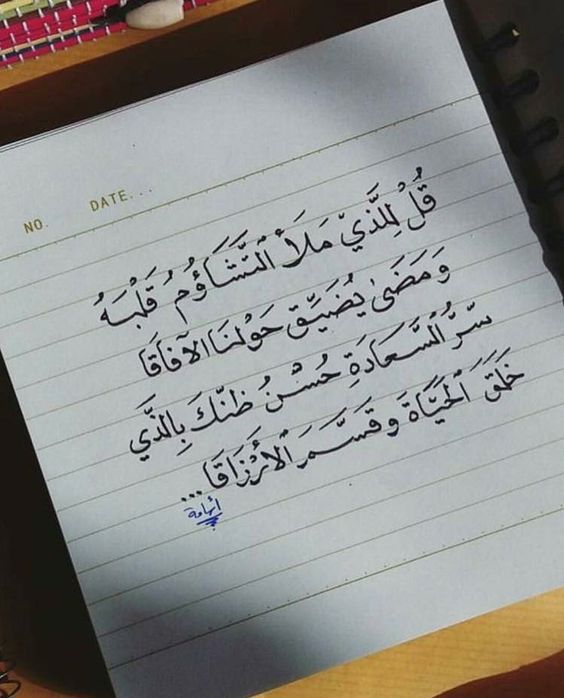 NO. DATE...
قُلْ لِلَّذِيْ مَلَأَ الْتَّشَاؤُمُ قَلْبَهُ
وَمَضَىٰ يُضَيِّق حَوْلنَا الآفَاقَا
سِرُّ الْسَّعَادَةِ حُسْنُ ظنّكَ بِالذَّي
خَلَقَ الْحَيَّاةَ وَقَسَّمَ الْأَرْزَاقَا...